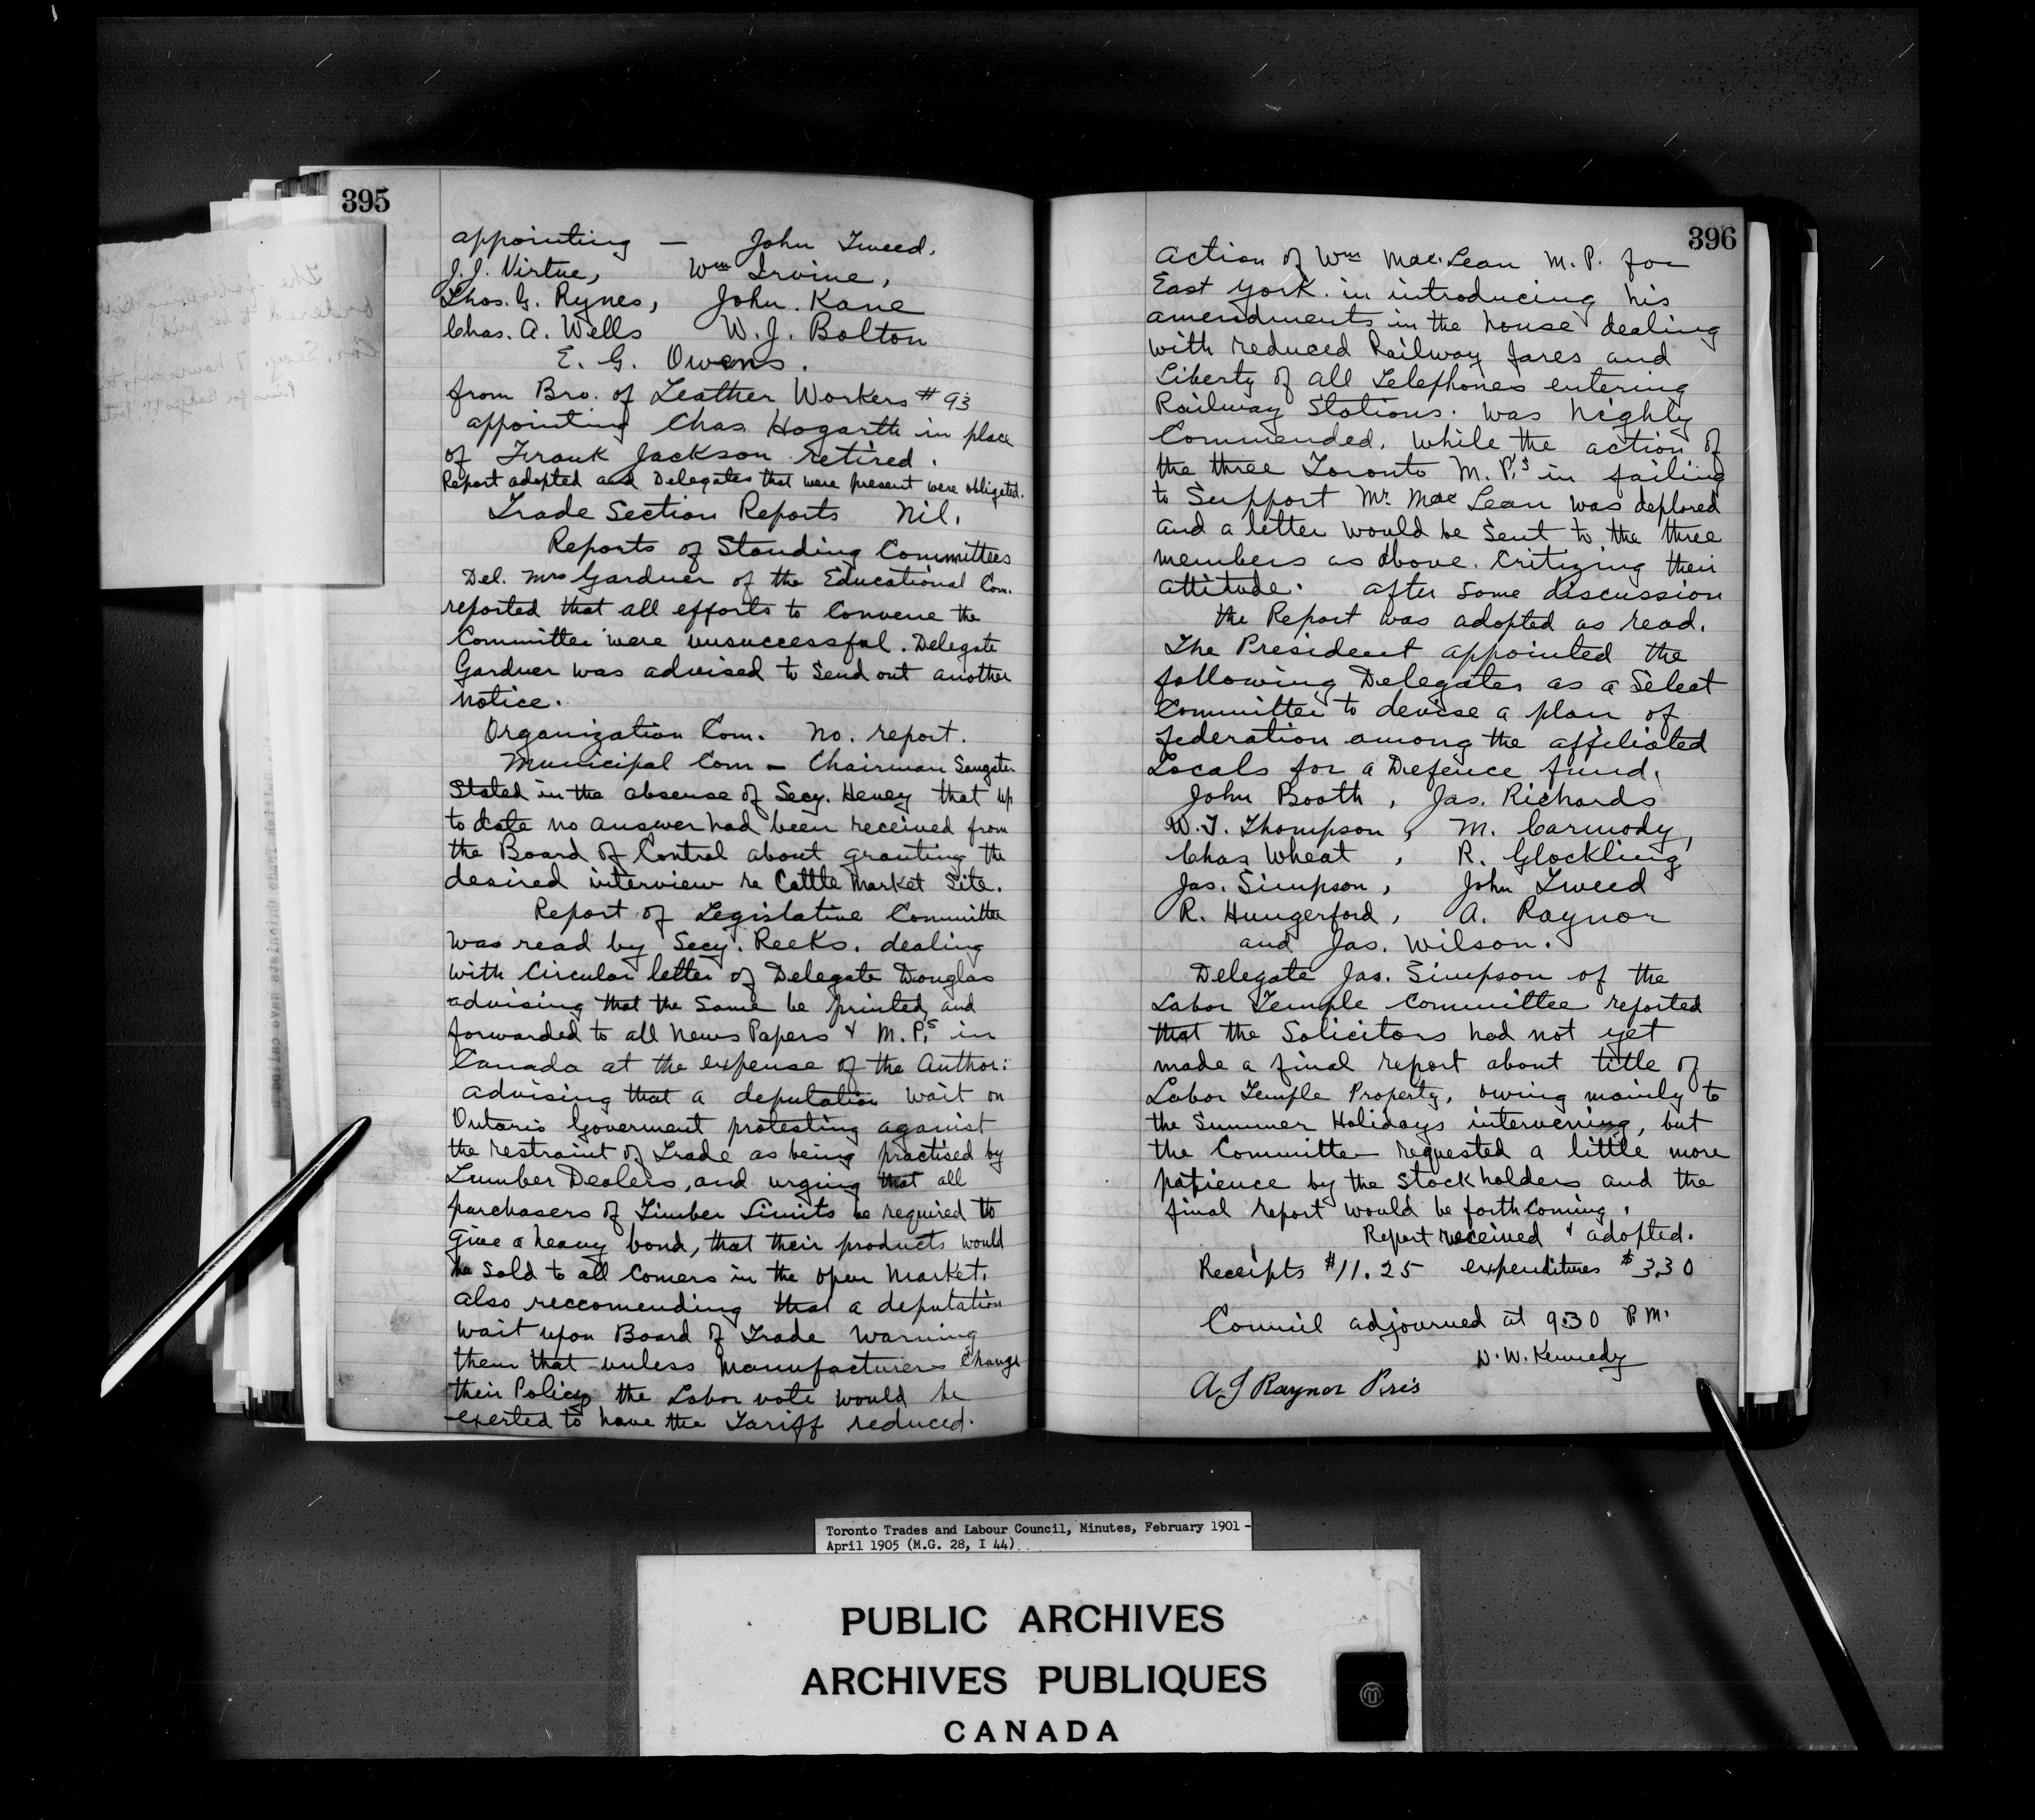 395
appointing — John Tweed,
J.J. Virtue, Wm Irvine,
Thos. G. Rynes, John. Kane
Chas. A. Wells W.J. Bolton
E. G. Owens.
from Bro. of Leather Workers # 93
appointing Chas Hogarth in place
of Frank Jackson retired.
Report adopted and Delegates that were present were obligated.
Trade Section Reports Nil.
Reports of Standing Committees
Del. Mrs Gardner of the Educational Com.
reported that all efforts to Convene the
Committee were unsuccessful. Delegate
Gardner was advised to Send out another
notice.
Organization Com. No. report.
Municipal Com — Chairman Sangster
Stated in the absense of Secy. Heney that up
to date no answer had been received from
the Board of Control about granting the
desired interview re Cattle Market Site.
Report of Legislative Committee
was read by Secy. Reeks. dealing
with Circular letter of Delegate Douglas
advising that the Same be printed and
forwarded to all News Papers & M.P.s in
Canada at the expense of the Author:
advising that a deputation wait on
Ontario Goverment protesting against
the restraint of Trade as being practised by
Lumber Dealers, and urging that all
purchasers of Timber Limits be required to
give a heavy bond, that their products would
be Sold to all Comers in the open Market.
also reccomending that a deputation
wait upon Board of Trade warning
them that unless Manufacturers Change
their Policy the Labor vote would be
exerted to have the Tariff reduced.
396
action of Wm Mac.Lean M.P. for
East York. in introducing his
amendments in the house dealing
with reduced Railway fares and
Liberty of all Telephones entering
Railway Stations. was highly
Commended. while the action of
the three Toronto M.P.s in failing
to Support Mr Mac Lean was deplored
and a letter would be Sent to the three
members as above. Critizing their
attitude. after Some discussion
the Report was adopted as read.
The President appointed the
following Delegates as a Select
Committee to devise a plan of
federation among the affiliated
Locals for a Defence fund.
John Booth, Jas. Richards
W.T. Thompson, M. Carmody,
Chas Wheat, R. Glockling
Jas. Simpson, John Tweed
R. Hungerford, A. Raynor
and Jas. Wilson.
Delegate Jas. Simpson of the
Labor Temple Committee reported
that the Solicitors had not yet
made a final report about title of
Labor Temple Property, owing mainly to
the Summer Holidays intervening, but
the Committe requested a little more
patience by the Stockholders and the
final report would be forthComing.
Report received & adopted.
Receipts $11.25 expenditures $3.30
Council adjourned at 9:30 P.M.
D.W. Kennedy
A J Raynor Pres
Toronto Trades and Labour Council, Minutes, February 1901 -
April 1905 (M.G. 28, I 44)
PUBLIC ARCHIVES
ARCHIVES PUBLIQUES
CANADA